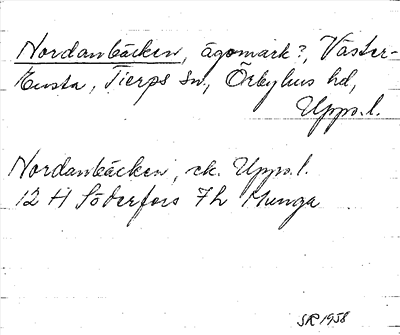 Nordanbäcken, ägomark?, Väster-
Ensta, Tierps sn, Örbyhus hd,
Upps.l.
Nordanbäcken, ek. Upps.l.
12 H Söderfors 7h Munga
SR 1958